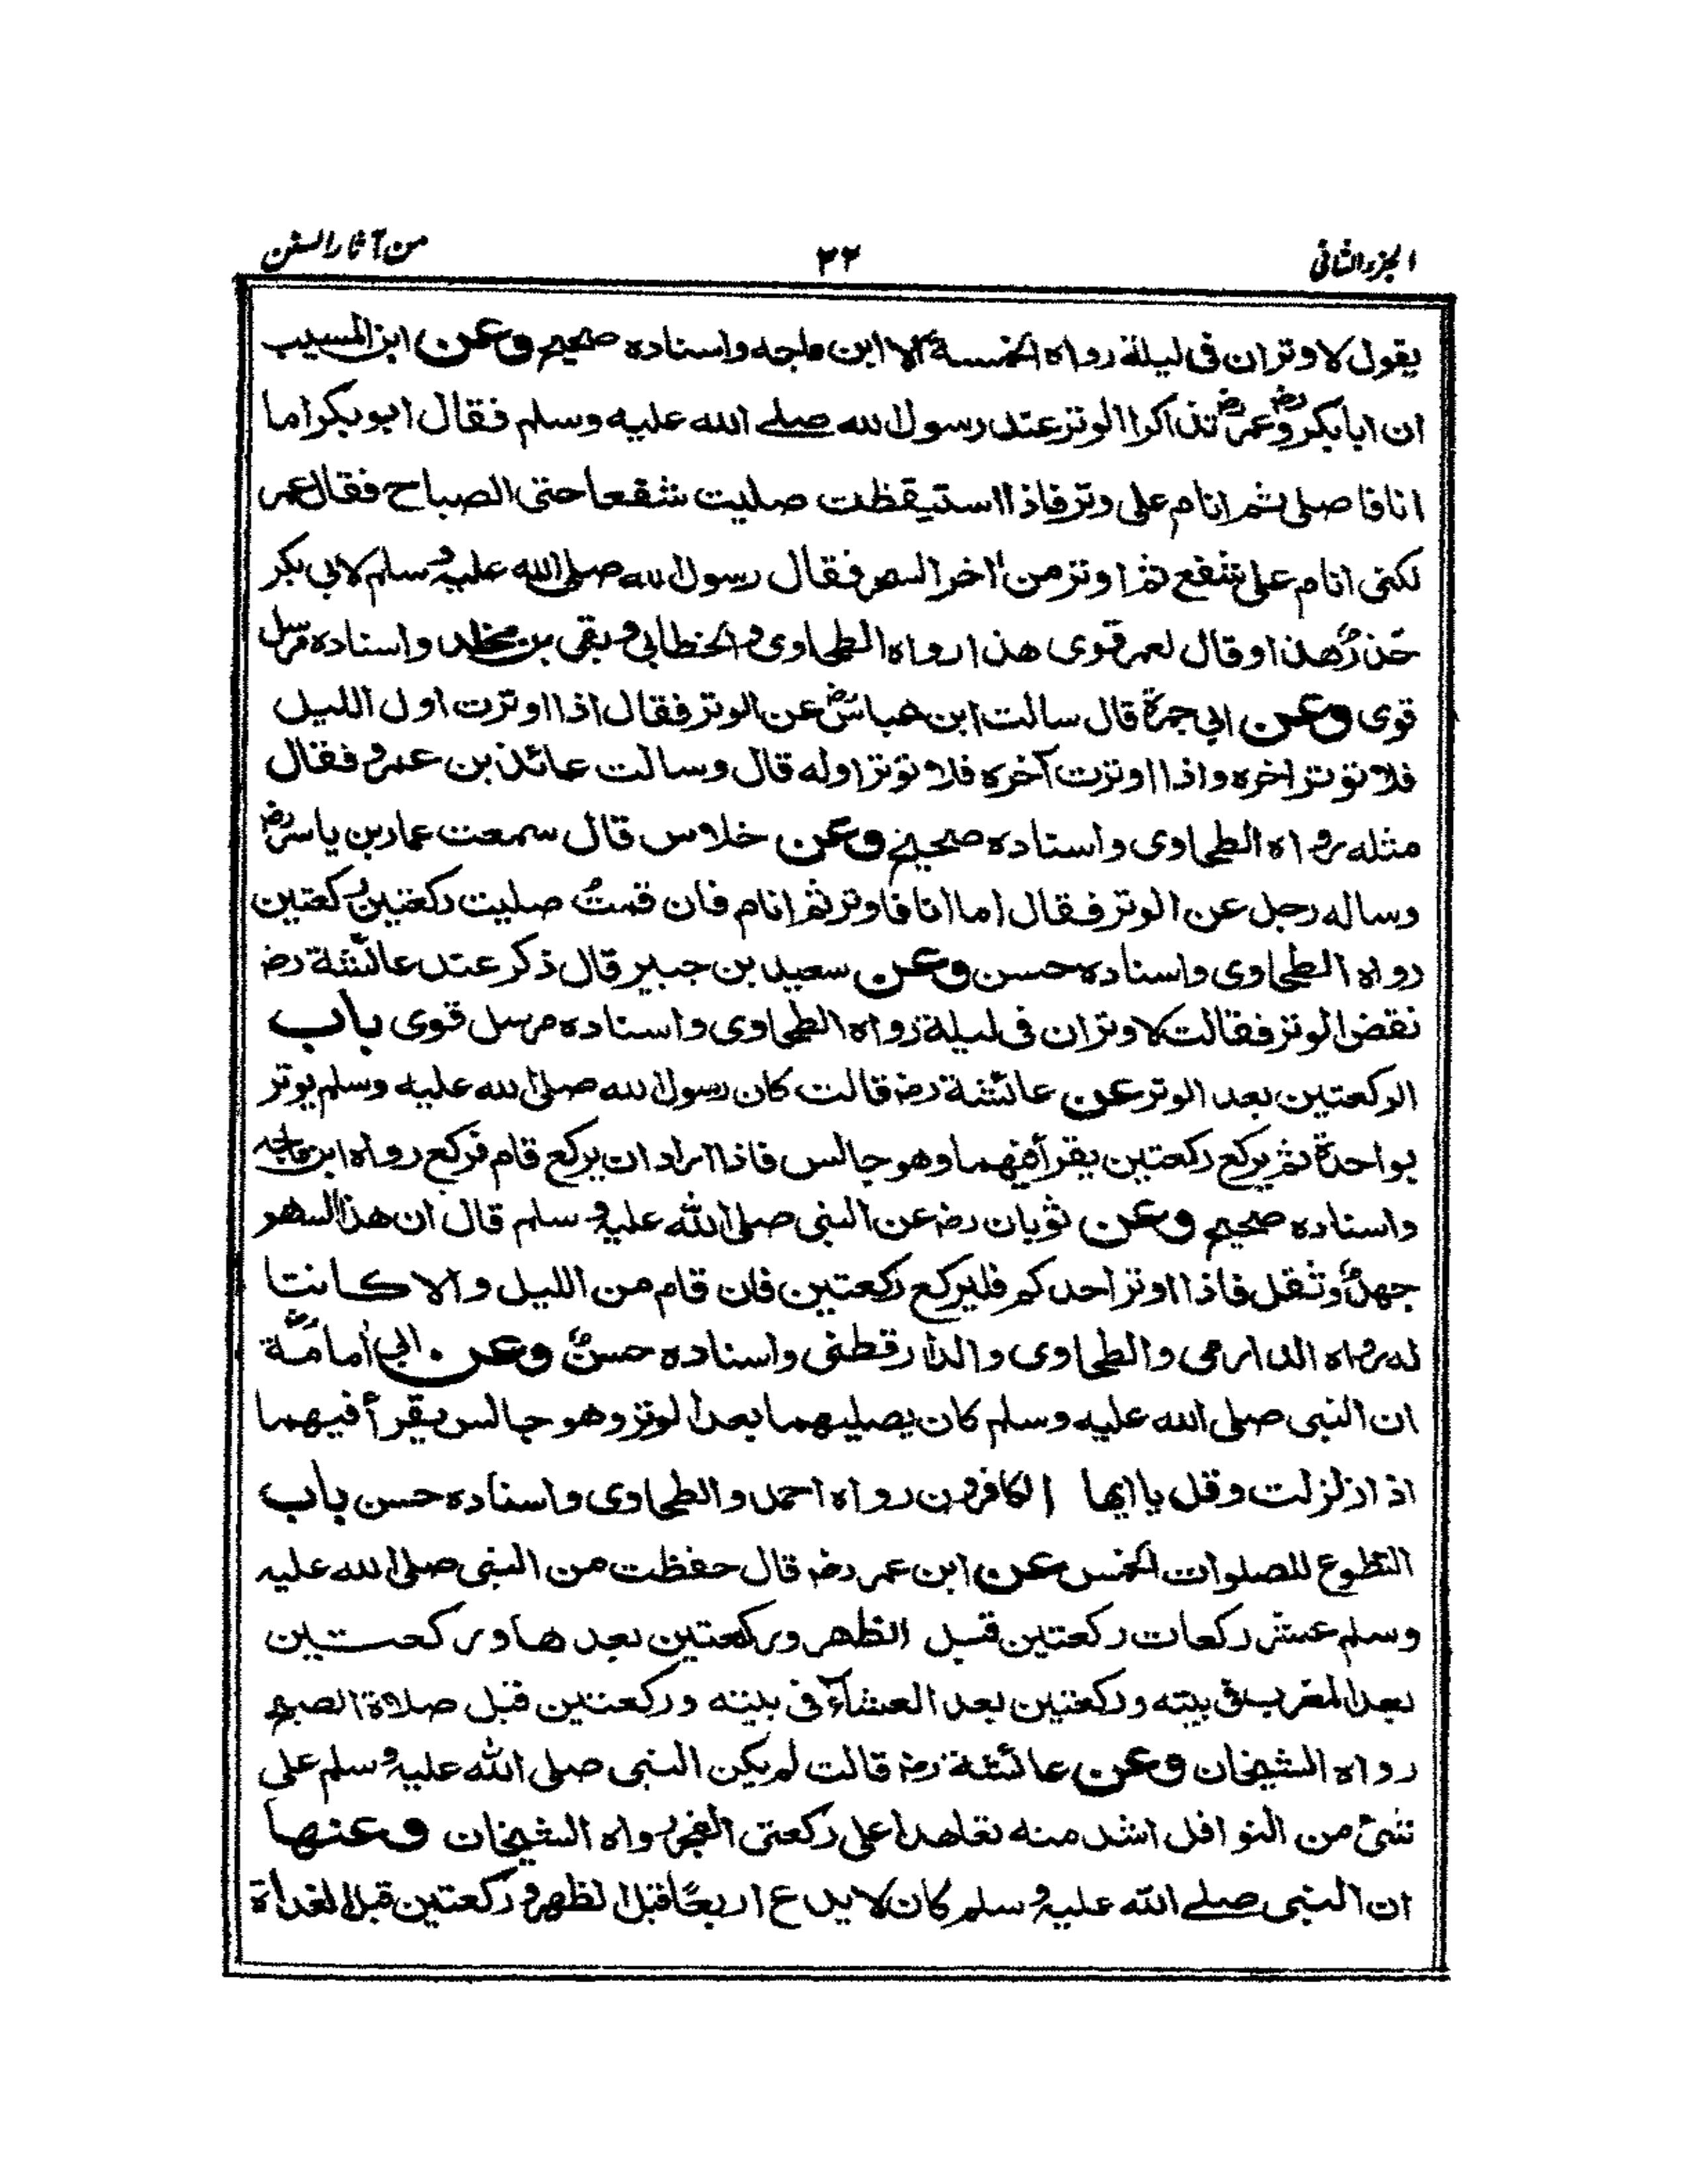 الجزء الثانى ٢٢ من آثار السنن
يقول لا وتران فى ليلة رواه الخمسة الا ابن ماجه واسناده صحيح وعن ابن المسيب
ان ابا بكر رض وعمر رض تذاكرا الوتر عند رسول لله صلے الله عليه وسلم فقال ابو بكر اما
انا فاصلى ثم انام على وتر فاذا استيقظت صليت شفعا حتى الصباح فقال عمر
لكنى انام على شفع ثم اوتر من اخر السحر فقال رسول لله صلى الله عليه وسلم لابى بكر
حذر هذا وقال لعمر قوى هذا رواه الطحاوى والخطابى وبقى بن مخلد واسناده مرسل
قوى وعن ابى جمرة قال سالت ابن عباس رض عن الوتر فقال اذا اوترت اول الليل
فلا توتر اخره واذا اوترت آخره فلا توتر اوله قال وسالت عائذ بن عمرو فقال
مثله رواه الطحاوى واسناده صحيح وعن خلاس قال سمعت عمار بن ياسر رض
وساله رجل عن الوتر فقال اما انا فاوتر ثم انام فان قمت صليت ركعتين ركعتين
رواه الطحاوى واسناده حسن وعن سعيد بن جبير قال ذكر عند عائشة رض
نقض الوتر فقالت لا وتران فى ليلة رواه الطحاوى واسناده مرسل قوى باب
الركعتين بعد الوتر عن عائشة رض قالت كان رسول لله صلى لله عليه وسلم يوتر
بواحدة ثم يركع ركعتين يقرأ فيهما وهو جالس فاذا اراد ان يركع قام فركع رواه ابن ماجه
واسناده صحيح وعن ثوبان رض عن النبى صلى الله عليه وسلم قال ان هذا السهر
جهد وثقل فاذا اوتر احدكم فليركع ركعتين فان قام من الليل والا كانتا
له رواه الدارمى والطحاوى والدارقطنى واسناده حسن وعن ابى أمامة رض
ان النبى صلى الله عليه وسلم كان يصليهما بعد الوتر وهو جالس يقرأ فيهما
اذا زلزلت وقل يا ايها الكافرون رواه احمد والطحاوى واسناده حسن باب
التطوع للصلوات الخمس عن ابن عمر رض قال حفظت من النبى صلى لله عليه
وسلم عشر ركعات ركعتين قبل الظهر وركعتين بعدها وركعتين
بعد المغرب فى بيته وركعتين بعد العشاء فى بيته وركعتين قبل صلاة الصبح
رواه الشيخان وعن عائشة رض قالت لم يكن النبى صلى الله عليه وسلم على
شئ من النوافل اشد منه تعاهدا على ركعتى الفجر رواه الشيخان وعنها
ان النبى صلے الله عليه وسلم كان لا يدع اربعا قبل الظهر وركعتين قبل الغداة